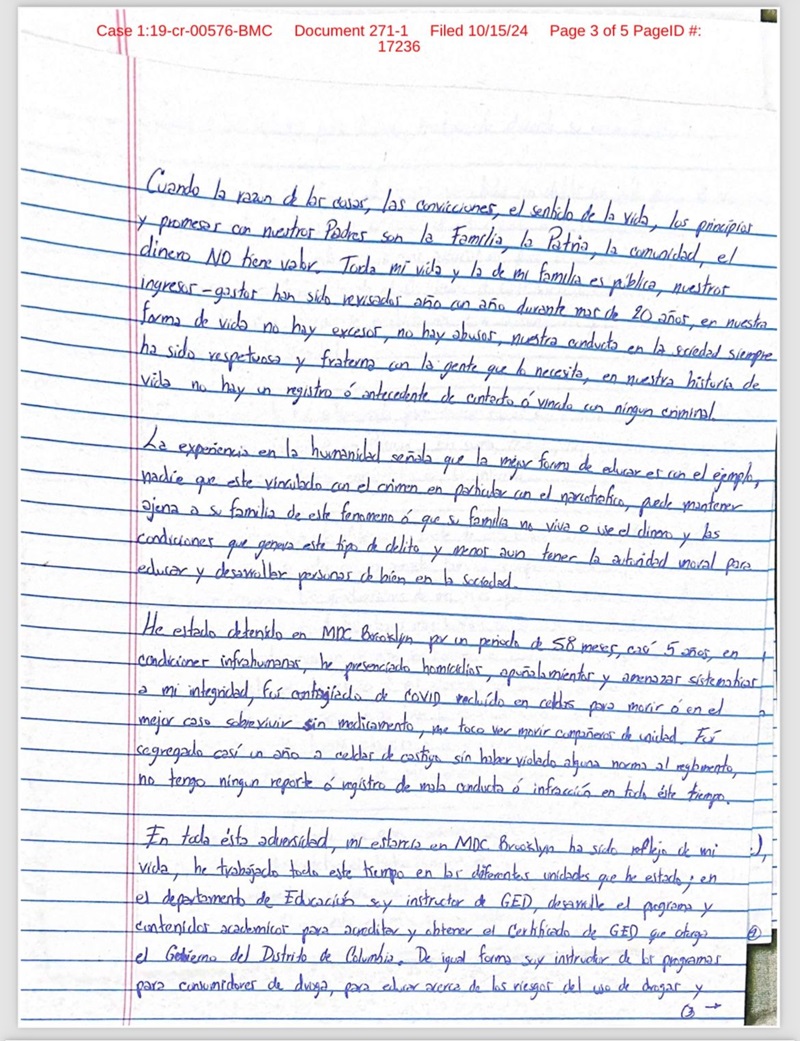 Case 1:19-cr-00576-BMC Document 271-1 Filed 10/15/24 Page 3 of 5 PageID #:
17236
Cuando la razon de las cosas, las convicciones, el sentido de la vida, los principios
y promesas con nuestros Padres son la Familia, la Patria, la comunidad, el
dinero NO tiene valor. Toda mi vida y la de mi familia es pública, nuestros
ingresos-gastos han sido revisados año con año durante mas de 20 años, en nuestra
forma de vida no hay excesos, no hay abusos, nuestra conducta en la sociedad siempre
ha sido respetuosa y fraterna con la gente que lo necesita, en nuestra historia de
vida no hay un registro ó antecedente de contacto ó vinculo con ningun criminal.
La experiencia en la humanidad señala que la mejor forma de educar es con el ejemplo,
nadie que este vinculado con el crimen en particular con el narcotrafico, puede mantener
ajena a su familia de este fenomeno ó que su familia no viva o use el dinero y las
condiciones que genera este tipo de delito y menos aun tener la autoridad moral para
educar y desarrollar personas de bien en la sociedad.
He estado detenido en MDC Brooklyn por un periodo de 58 meses, casí 5 años, en
condiciones infrahumanas, he presenciado homicidios, apuñalamientos y amenazas sistematicas
a mi integridad, fui contagiado de COVID recluído en celdas para morir ó en el
mejor caso sobrevivir sin medicamento, me toco ver morir compañeros de unidad. Fuí
segregado casí un año a celdas de castigo sin haber violado alguna norma al reglamento,
no tengo ningun reporte ó registro de mala conducta ó infracción en todo éste tiempo.
En toda ésta adversidad, mi estancia en MDC Brooklyn ha sido reflejo de mi
vida, he trabajado todo este tiempo en las diferentes unidades que he estado; en
el departamento de Educación soy instructor de GED, desarrolle el programa y
contenidos academicos para acreditar y obtener el Certificado de GED que otorga
el Gobierno del Distrito de Columbia. De igual forma soy instructor de los programas
para consumidores de droga, para educar acerca de los riesgos del uso de drogas y
(3 →